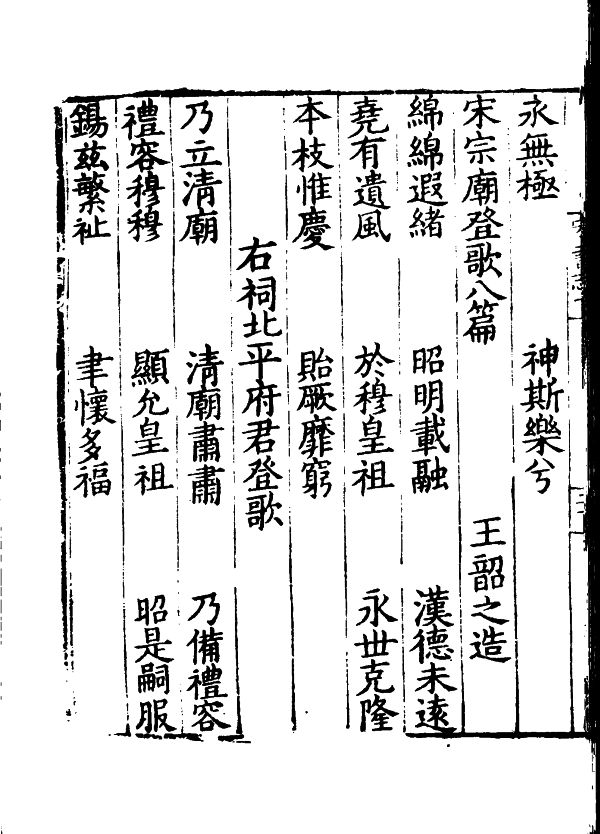 永無極　神斯樂兮
宋宗廟登歌八篇　王韶之造
綿綿遐緒　昭明載融　漢德未遠
堯有遺風　於穆皇祖　永世克隆
本枝惟慶　貽厥靡窮
右祠北平府君登歌
乃立清廟　清廟肅肅　乃備禮容
禮容穆穆　顯允皇祖　昭是嗣服
錫茲繁祉　聿懷多福